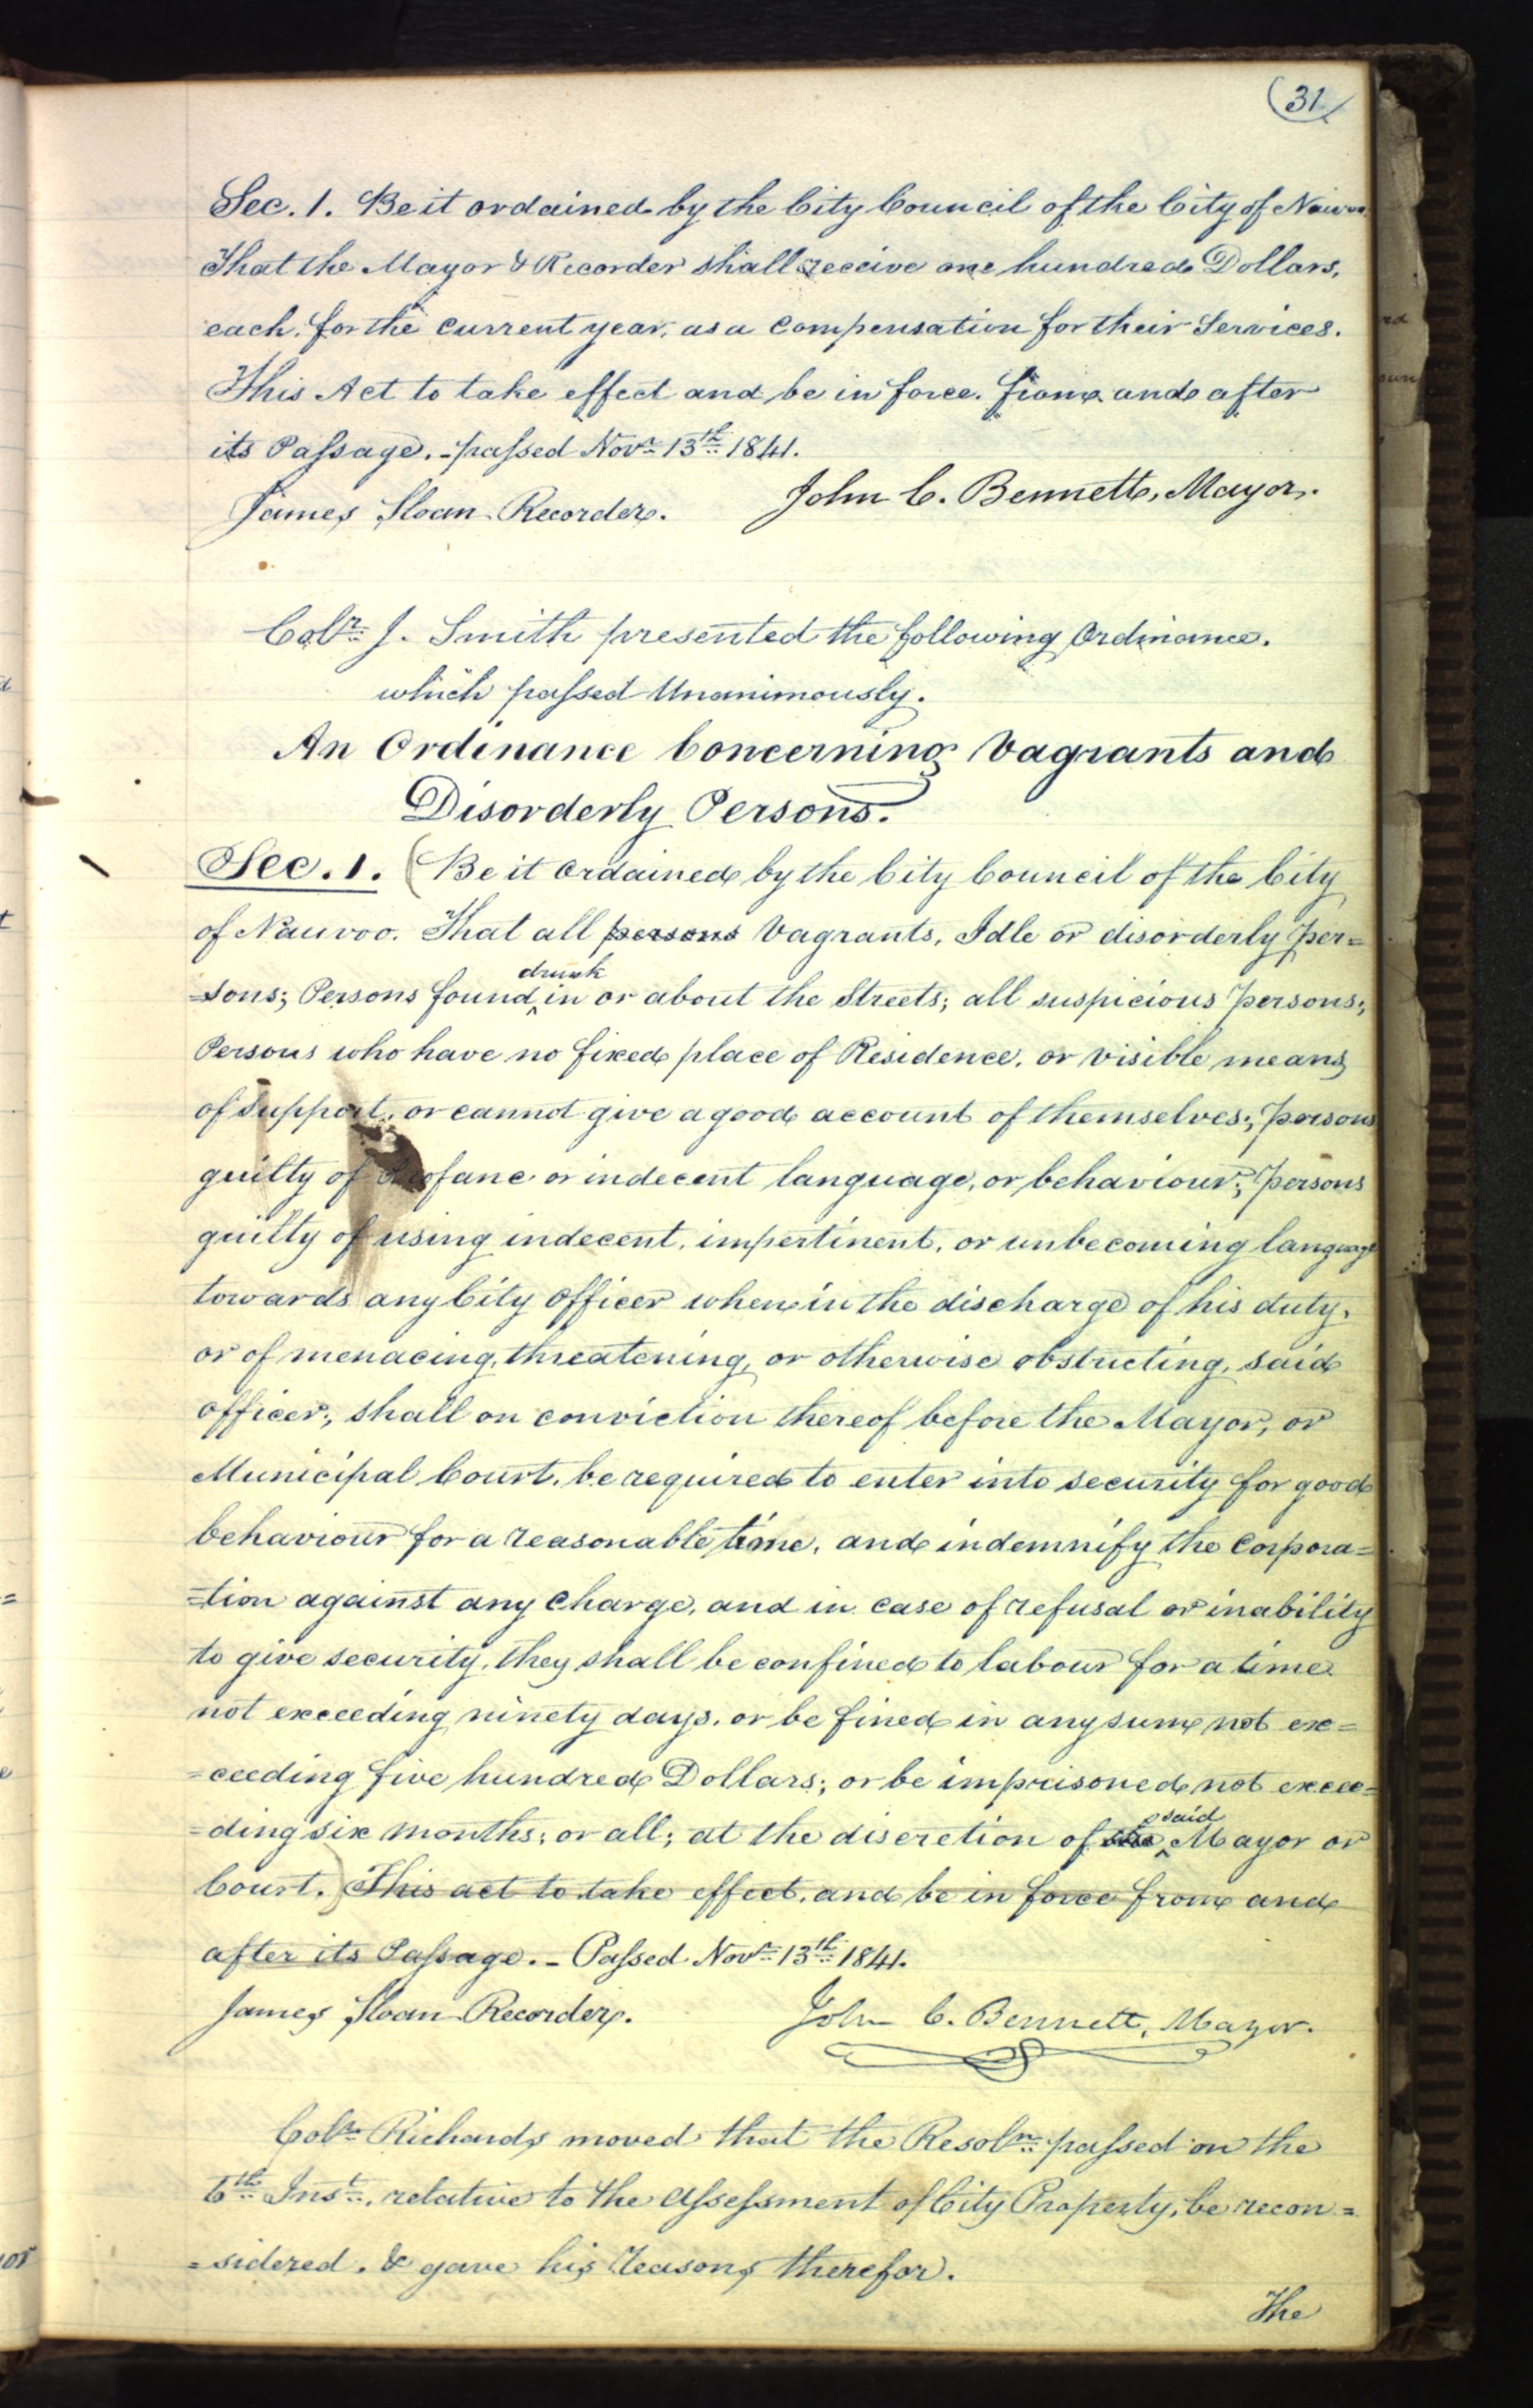 (31)
Sec. 1. Be it ordained by the City Council of the City of Nauvoo
That the Mayor & Recorder shall receive one hundred Dollars,
each, for the current year, as a Compensation for their Services.
This Act to take effect and be in force, from and after
its Passage. - passed Novr. 13th. 1841.
James Sloan Recorder. John C. Bennett, Mayor.
Colr. J. Smith presented the following Ordinance.
which passed Unanimously.
An Ordinance Concerning Vagrants and
Disorderly Persons.
Sec. 1. (Be it Ordained by the City Council of the City
of Nauvoo. That all persons Vagrants, Idle or disorderly per=
drunk
=sons; Persons found ^ in or about the Streets; all suspicious persons;
Persons who have no fixed place of Residence, or visible means
of Support, or cannot give a good account of themselves; persons
guilty of Profane or indecent language, or behaviour; persons
guilty of using indecent, impertinent, or unbecoming language
towards any City Officer when in the discharge of his duty,
or of menacing, threatening, or otherwise obstructing, said
officer; shall on conviction thereof before the Mayor, or
Municipal Court, be required to enter into security for good
behaviour for a reasonable time, and indemnify the Corpora=
=tion against any Charge, and in case of refusal or inability
to give security, they shall be confined to labour for a time
not exceeding ninety days, or be fined in any sum not ex=
=ceeding five hundred Dollars; or be imprisoned not excee=
said
=ding six months; or all; at the discretion of the ^ Mayor or
Court.) This act to take effect, and be in force from and
after its Passage. - Passed Novr. 13th. 1841.
James Sloan Recorder. John C. Bennett, Mayor.
Colr. Richards moved that the Resoln. passed on the
6th. Inst., relative to the assessment of City Property, be recon=
=sidered, & gave his reasons therefor.
The